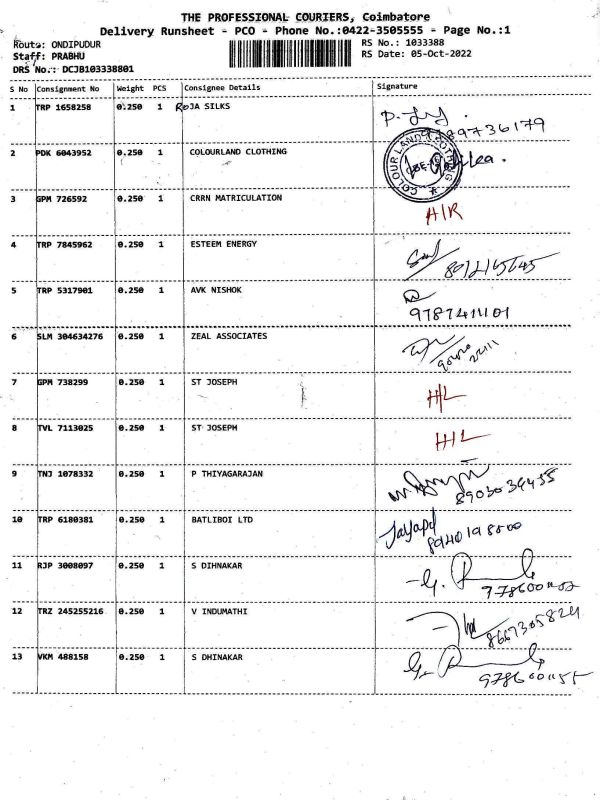 THE PROFESSIONAL COURIERS, Coimbatore
Delivery Runsheet - PCO - Phone No.:0422-3505555 - Page No.:1
Route: ONDIPUDUR
RS No.: 1033388
Staff: PRABHU
RS Date: 05-Oct-2022
DRS No.: DCJB103338801
S No Consignment No Weight PCS Consignee Details Signature
1 TRP 1658258 0.250 1 ROJA SILKS
9789736179
2 PDK 6043952 0.250 1 COLOURLAND CLOTHING
COLOUR LAND CLOTHING
3 GPM 726592 0.250 1 CRRN MATRICULATION A/R
4 TRP 7845962 0.250 1 ESTEEM ENERGY
5 TRP 5317901 0.250 1 AVK NISHOK
9787411101
6 SLM 304634276 0.250 1 ZEAL ASSOCIATES
7 GPM 738299 0.250 1 ST JOSEPH H/L
8 TVL 7113025 0.250 1 ST JOSEPH H/L
9 TNJ 1078332 0.250 1 P THIYAGARAJAN
8903034455
10 TRP 6180381 0.250 1 BATLIBOI LTD
11 RJP 3008097 0.250 1 S DIHNAKAR
12 TRZ 245255216 0.250 1 V INDUMATHI
8667305824
13 VKM 488158 0.250 1 S DHINAKAR